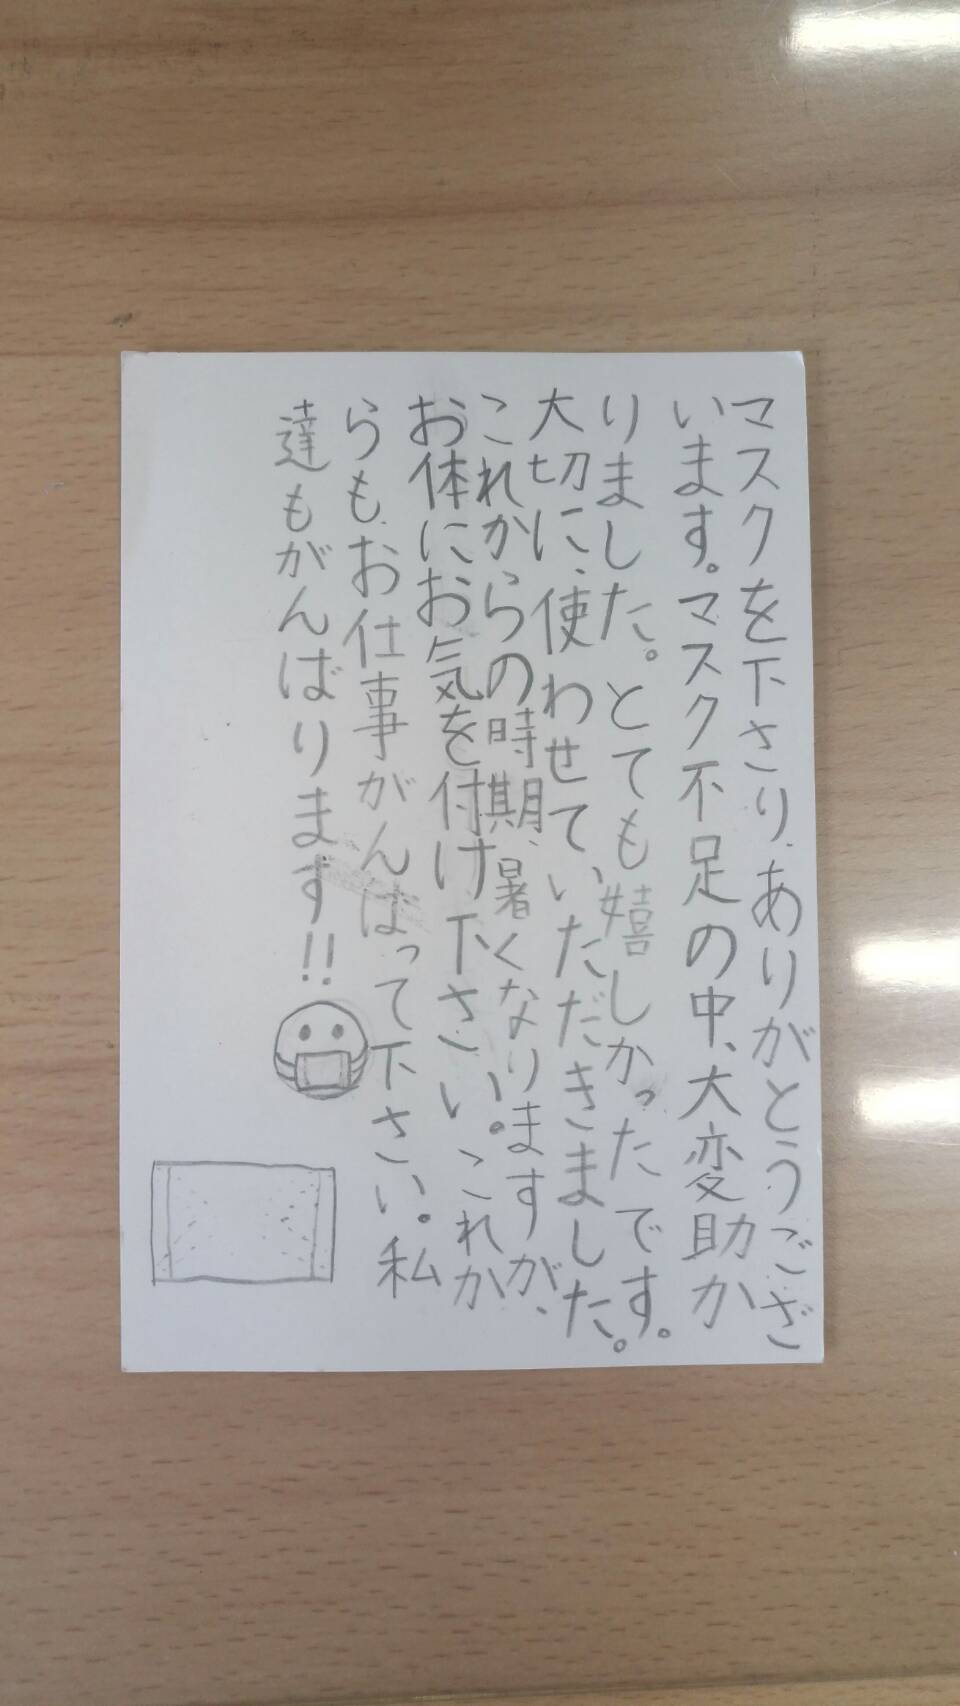 マスクを下さり、ありがとうござ
います。マスク不足の中、大変助か
りました。とても嬉しかったです。
大切に、使わせていただきました。
これからの時期、暑くなりますが、
お体にお気を付け下さい。これか
らもお仕事がんばって下さい。私
達もがんばります!!